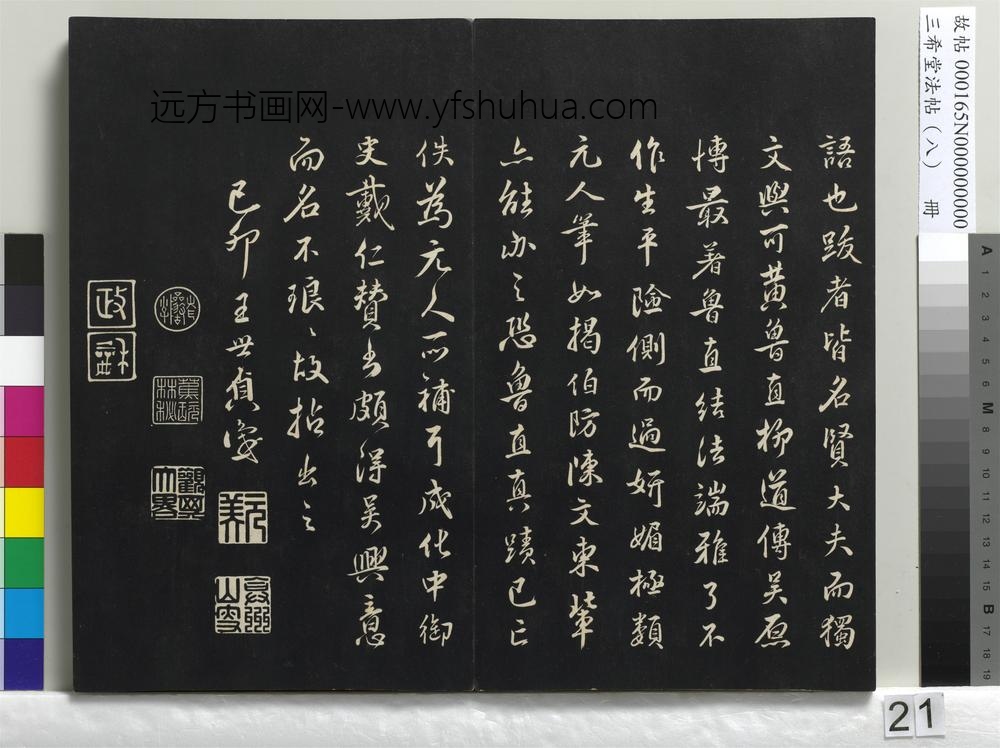 語也跋者皆名賢大夫而獨
文與可黃魯直柳道傳吳原
博最著魯直結法端雅了不
作生平險側而過妍媚極類
元人筆如揭伯防陳文東輩
亦能办之恐魯直真蹟已亡
佚為元人所補耳成化中御
史戴仁贊書頗得吳興意
而名不琅〻故拈出之
己卯王世貞識
远方书画网-www.yfshuhua.com
故帖 000165N000000000
三希堂法帖(八) 冊
A 1 2 3 4 5 6 M 8 9 10 11 12 13 14 15 B 17 18 19
21